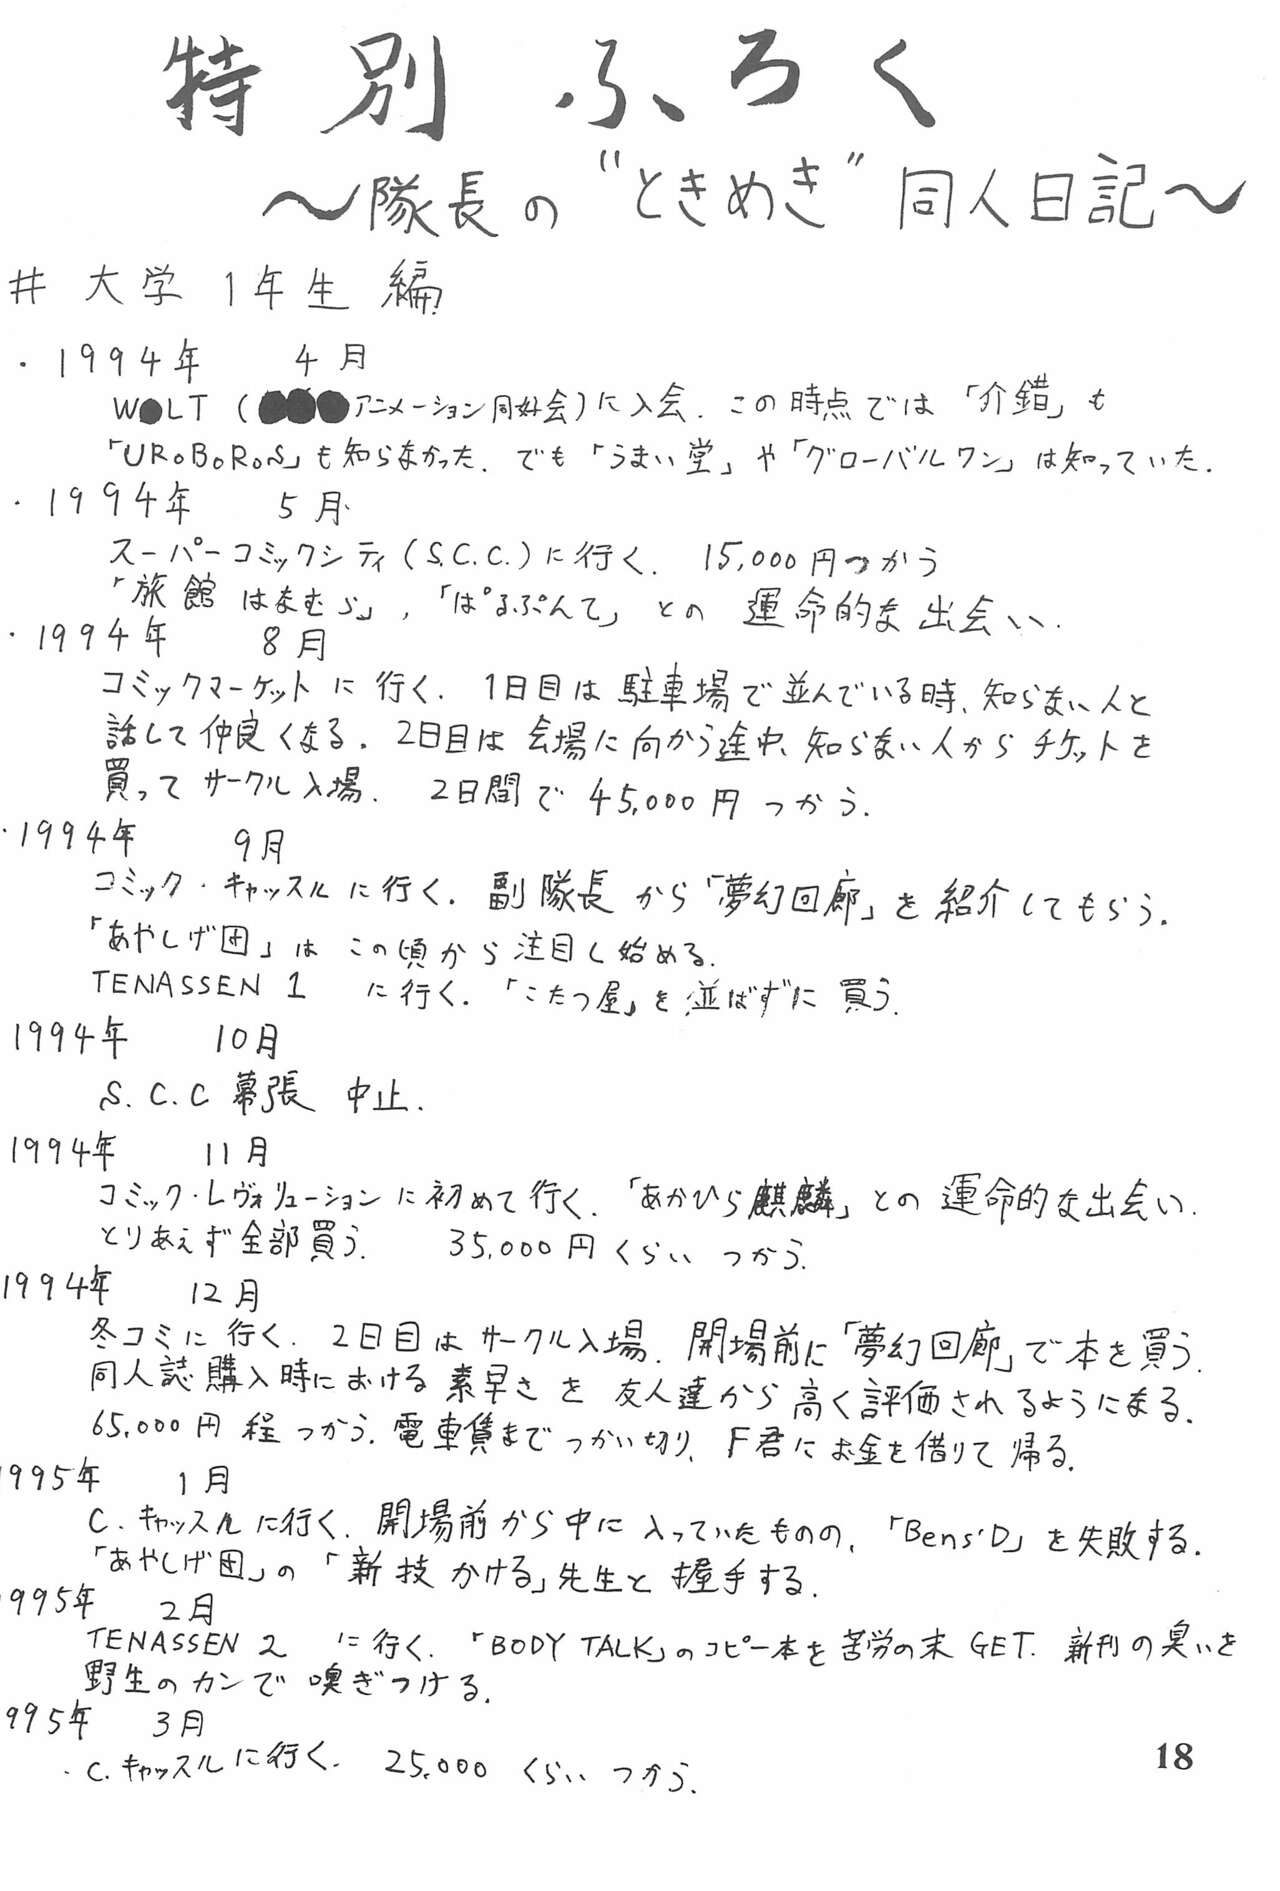 特別ふろく
～隊長の“ときめき”同人日記～
# 大学1年生編
・1994年 4月
W●LT（●●●アニメーション同好会）に入会．この時点では「介錯」も
「URoBoRoS」も知らなかった．でも「うまい堂」や「グローバルワン」は知っていた．
・1994年 5月
スーパーコミックシティ（S.C.C.）に行く．15,000円つかう
「旅館はなむら」，「ぱるぷんて」との運命的な出会い．
・1994年 8月
コミックマーケットに行く．1日目は駐車場で並んでいる時、知らない人と
話して仲良くなる．2日目は会場に向かう途中、知らない人からチケットを
買ってサークル入場．2日間で45,000円つかう．
・1994年 9月
コミック・キャッスルに行く．副隊長から「夢幻回廊」を紹介してもらう．
「あやしげ団」はこの頃から注目し始める．
TENASSEN 1 に行く．「こたつ屋」を並ばずに買う．
1994年 10月
S.C.C 幕張 中止．
1994年 11月
コミック・レヴォリューションに初めて行く．「あかひら麒麟」との運命的な出会い．
とりあえず全部買う． 35,000円くらいつかう．
1994年 12月
冬コミに行く．2日目はサークル入場．開場前に「夢幻回廊」で本を買う．
同人誌購入時における素早さを友人達から高く評価されるようになる．
65,000円程つかう．電車賃までつかい切り、F君にお金を借りて帰る．
1995年 1月
C.キャッスルに行く．開場前から中に入っていたものの、「Bens'D」を失敗する．
「あやしげ団」の「新技かける」先生と握手する．
1995年 2月
TENASSEN 2 に行く．「BODY TALK」のコピー本を苦労の末GET．新刊の臭いを
野生のカンで嗅ぎつける．
995年 3月
・C.キャッスルに行く．25,000くらいつかう．
18